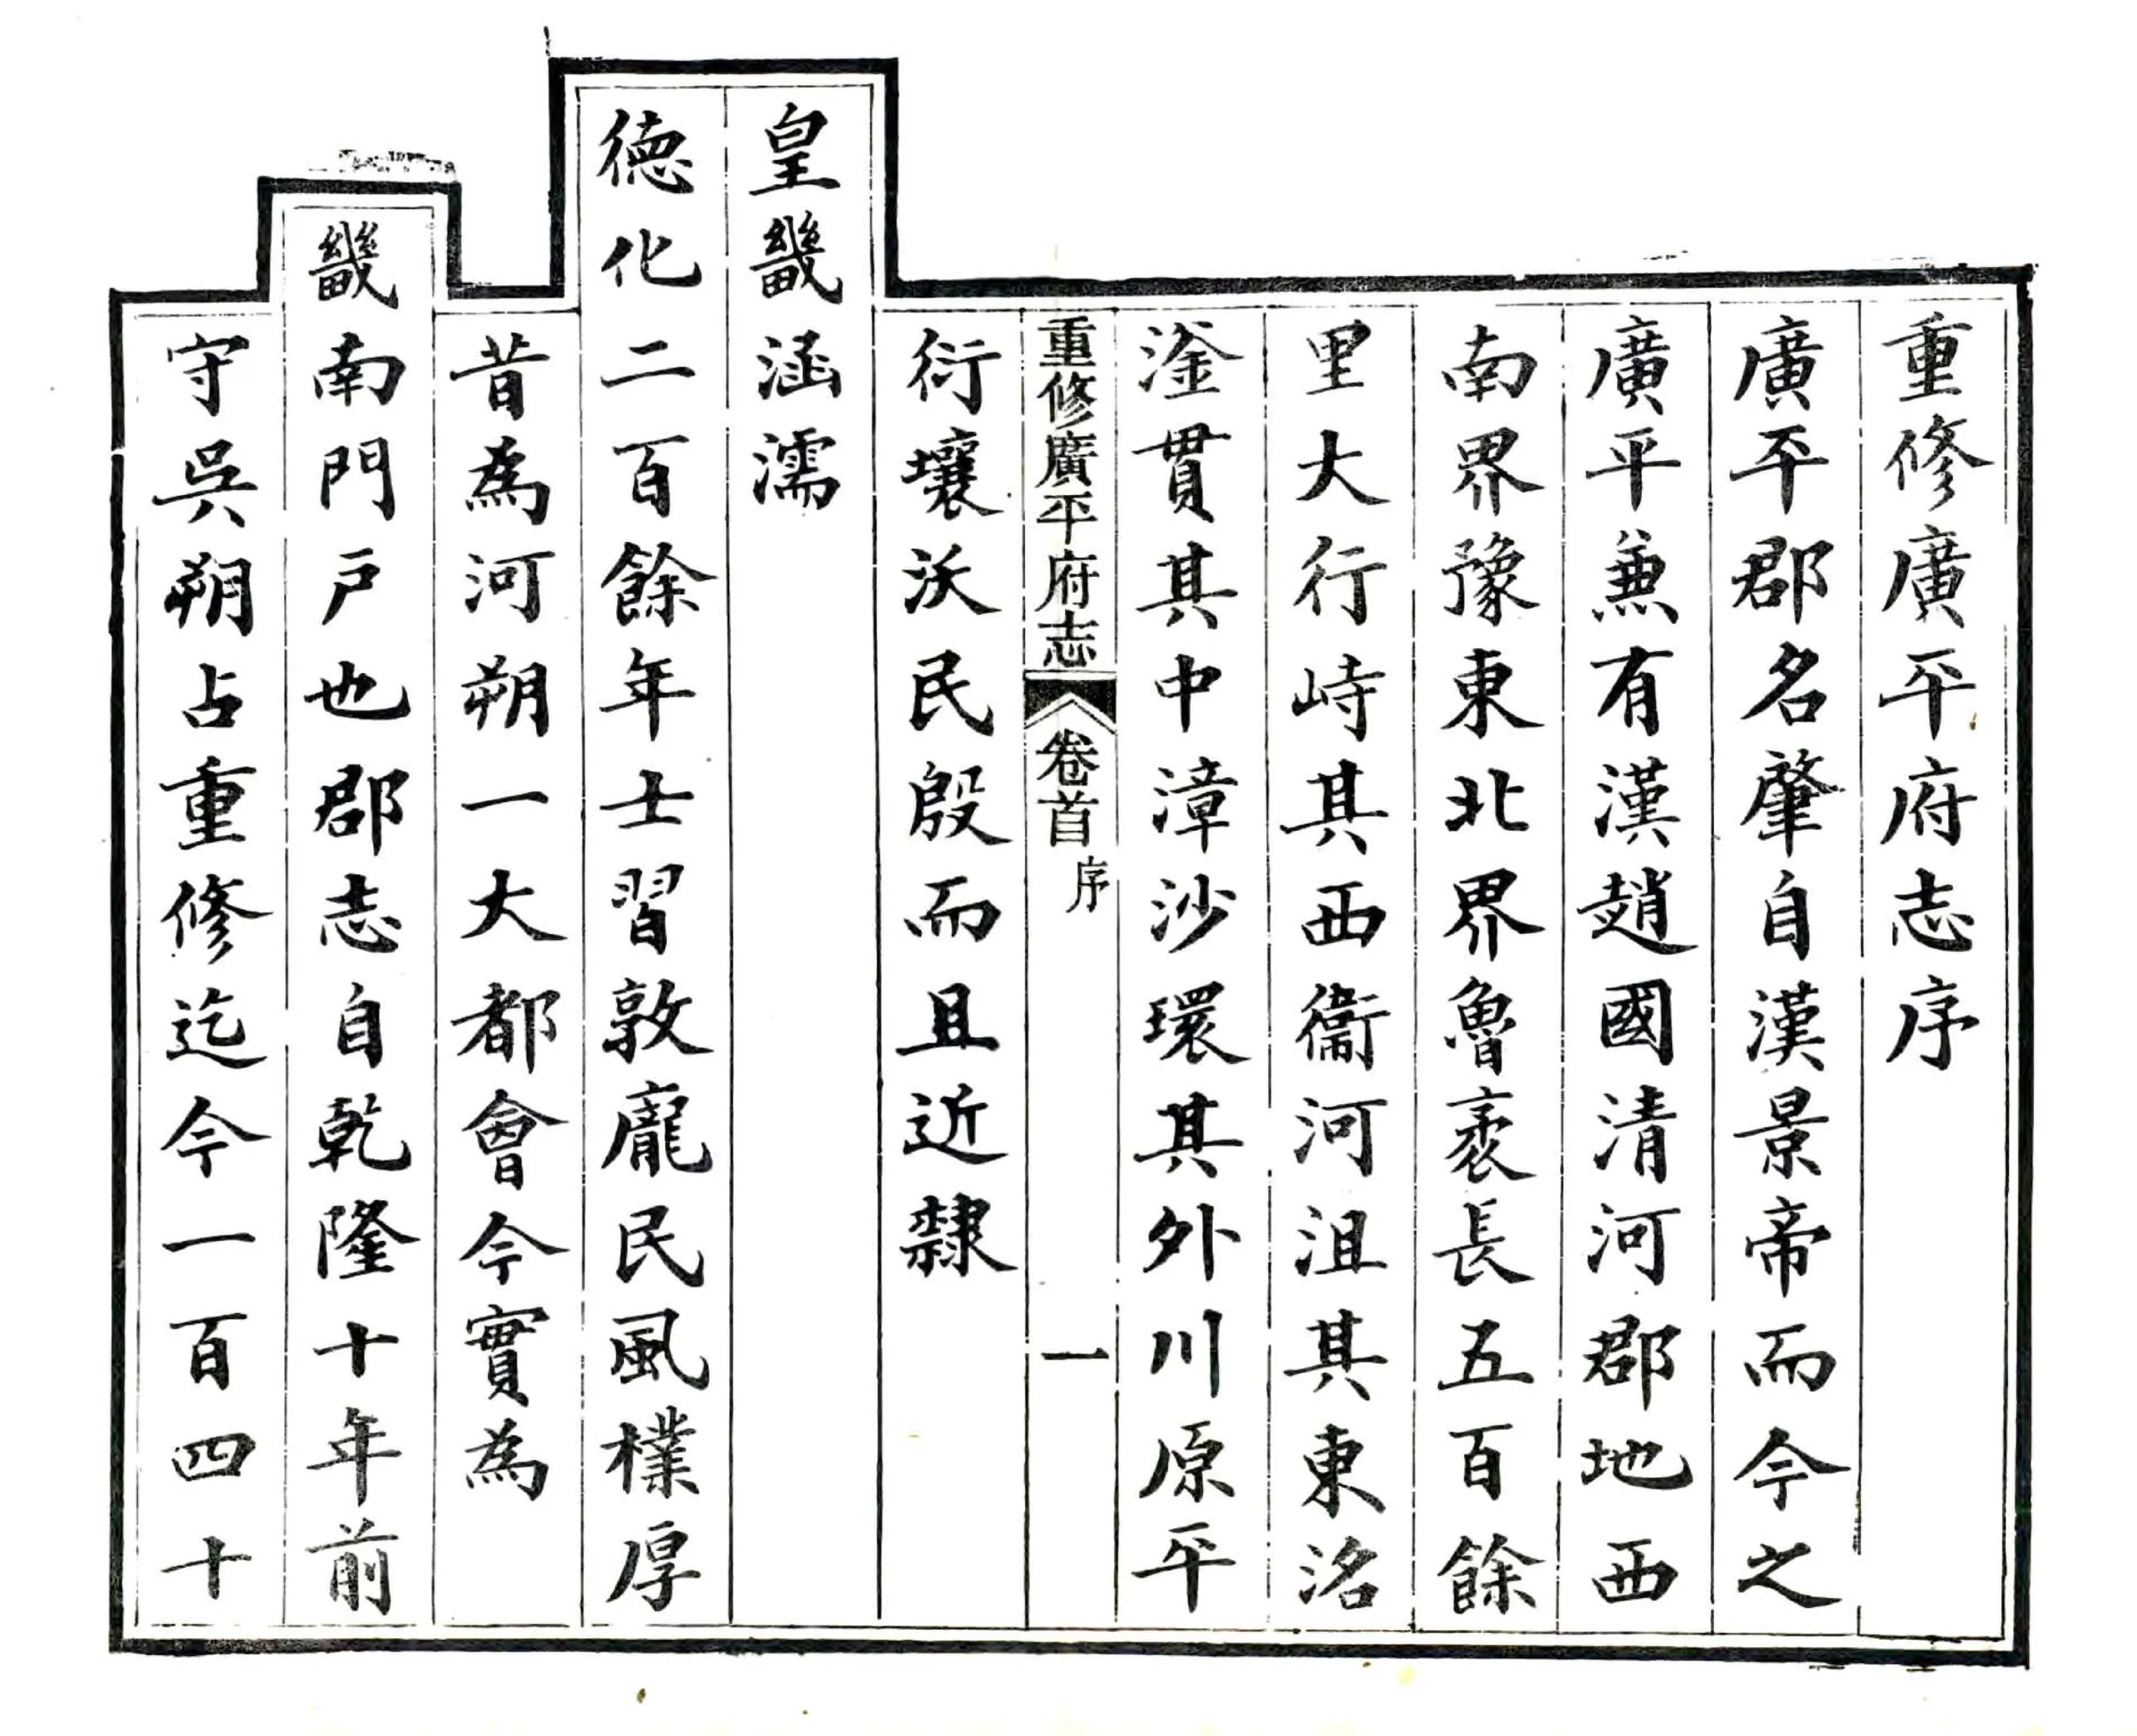 重修廣平府志序
廣平郡名肇自漢景帝而今之
廣平兼有漢趙國清河郡地西
南界豫東北界魯袤長五百餘
里大行峙其西衞河沮其東洺
滏貫其中漳沙環其外川原平
重修廣平府志 卷首 序 一
衍壤沃民殷而且近隸
皇畿涵濡
德化二百餘年士習敦龐民風樸厚
昔為河朔一大都會今實為
畿南門戶也郡志自乾隆十年前
守吳朔占重修迄今一百四十